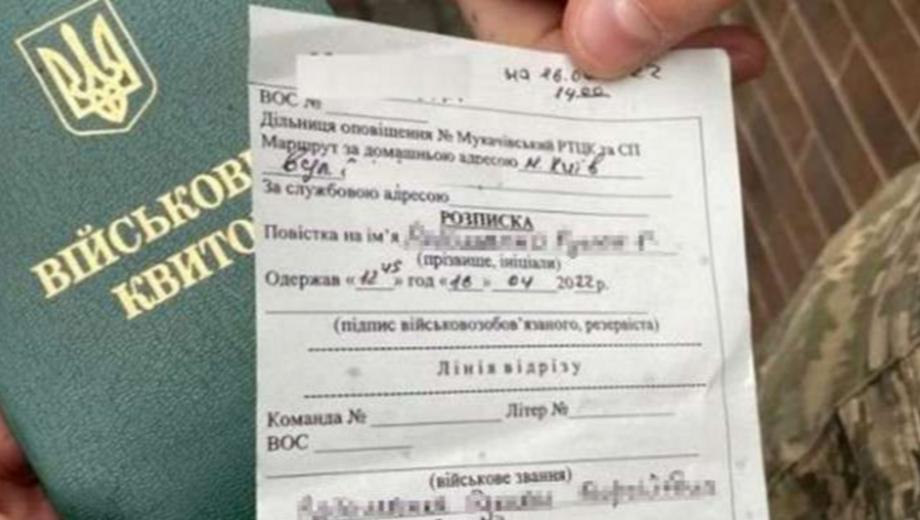 ВІЙСЬКОВ
КВИТО
на 16.0 22
14.00
ВОС №
Дільниця оповіщення № Мукачівський РТЦК та СП
Маршрут за домашньою адресою м. Київ
За службовою адресою
РОЗПИСКА
Повістка на ім'я
(прізвище, ініціали)
Одержав «12 45» год «16» 04 2022 р.
(підпис військовозобов'язаного, резервіста)
Лінія відрізу
Команда № Літер №
ВОС
(військове звання)